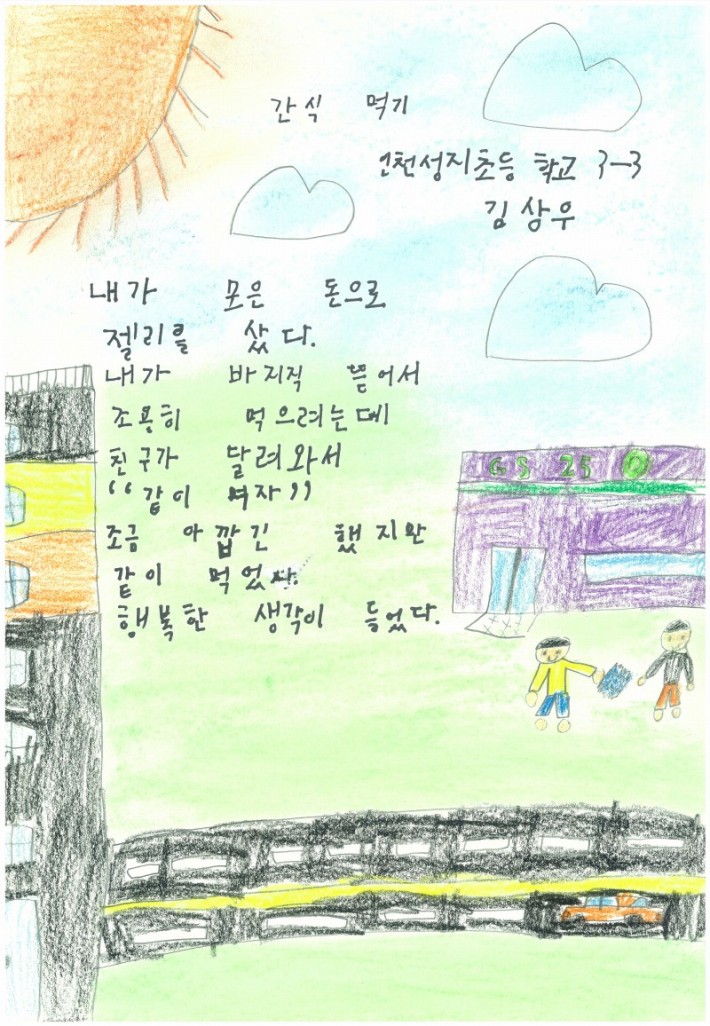 간식 먹기
인천성지초등 학교 3-3
김상우
내가 모은 돈으로
젤리를 샀다.
내가 바지직 뜯어서
조용히 먹으려는데
친구가 달려와서
“같이 먹자”
조금 아깝긴 했지만
같이 먹었다.
행복한 생각이 들었다.
GS 25